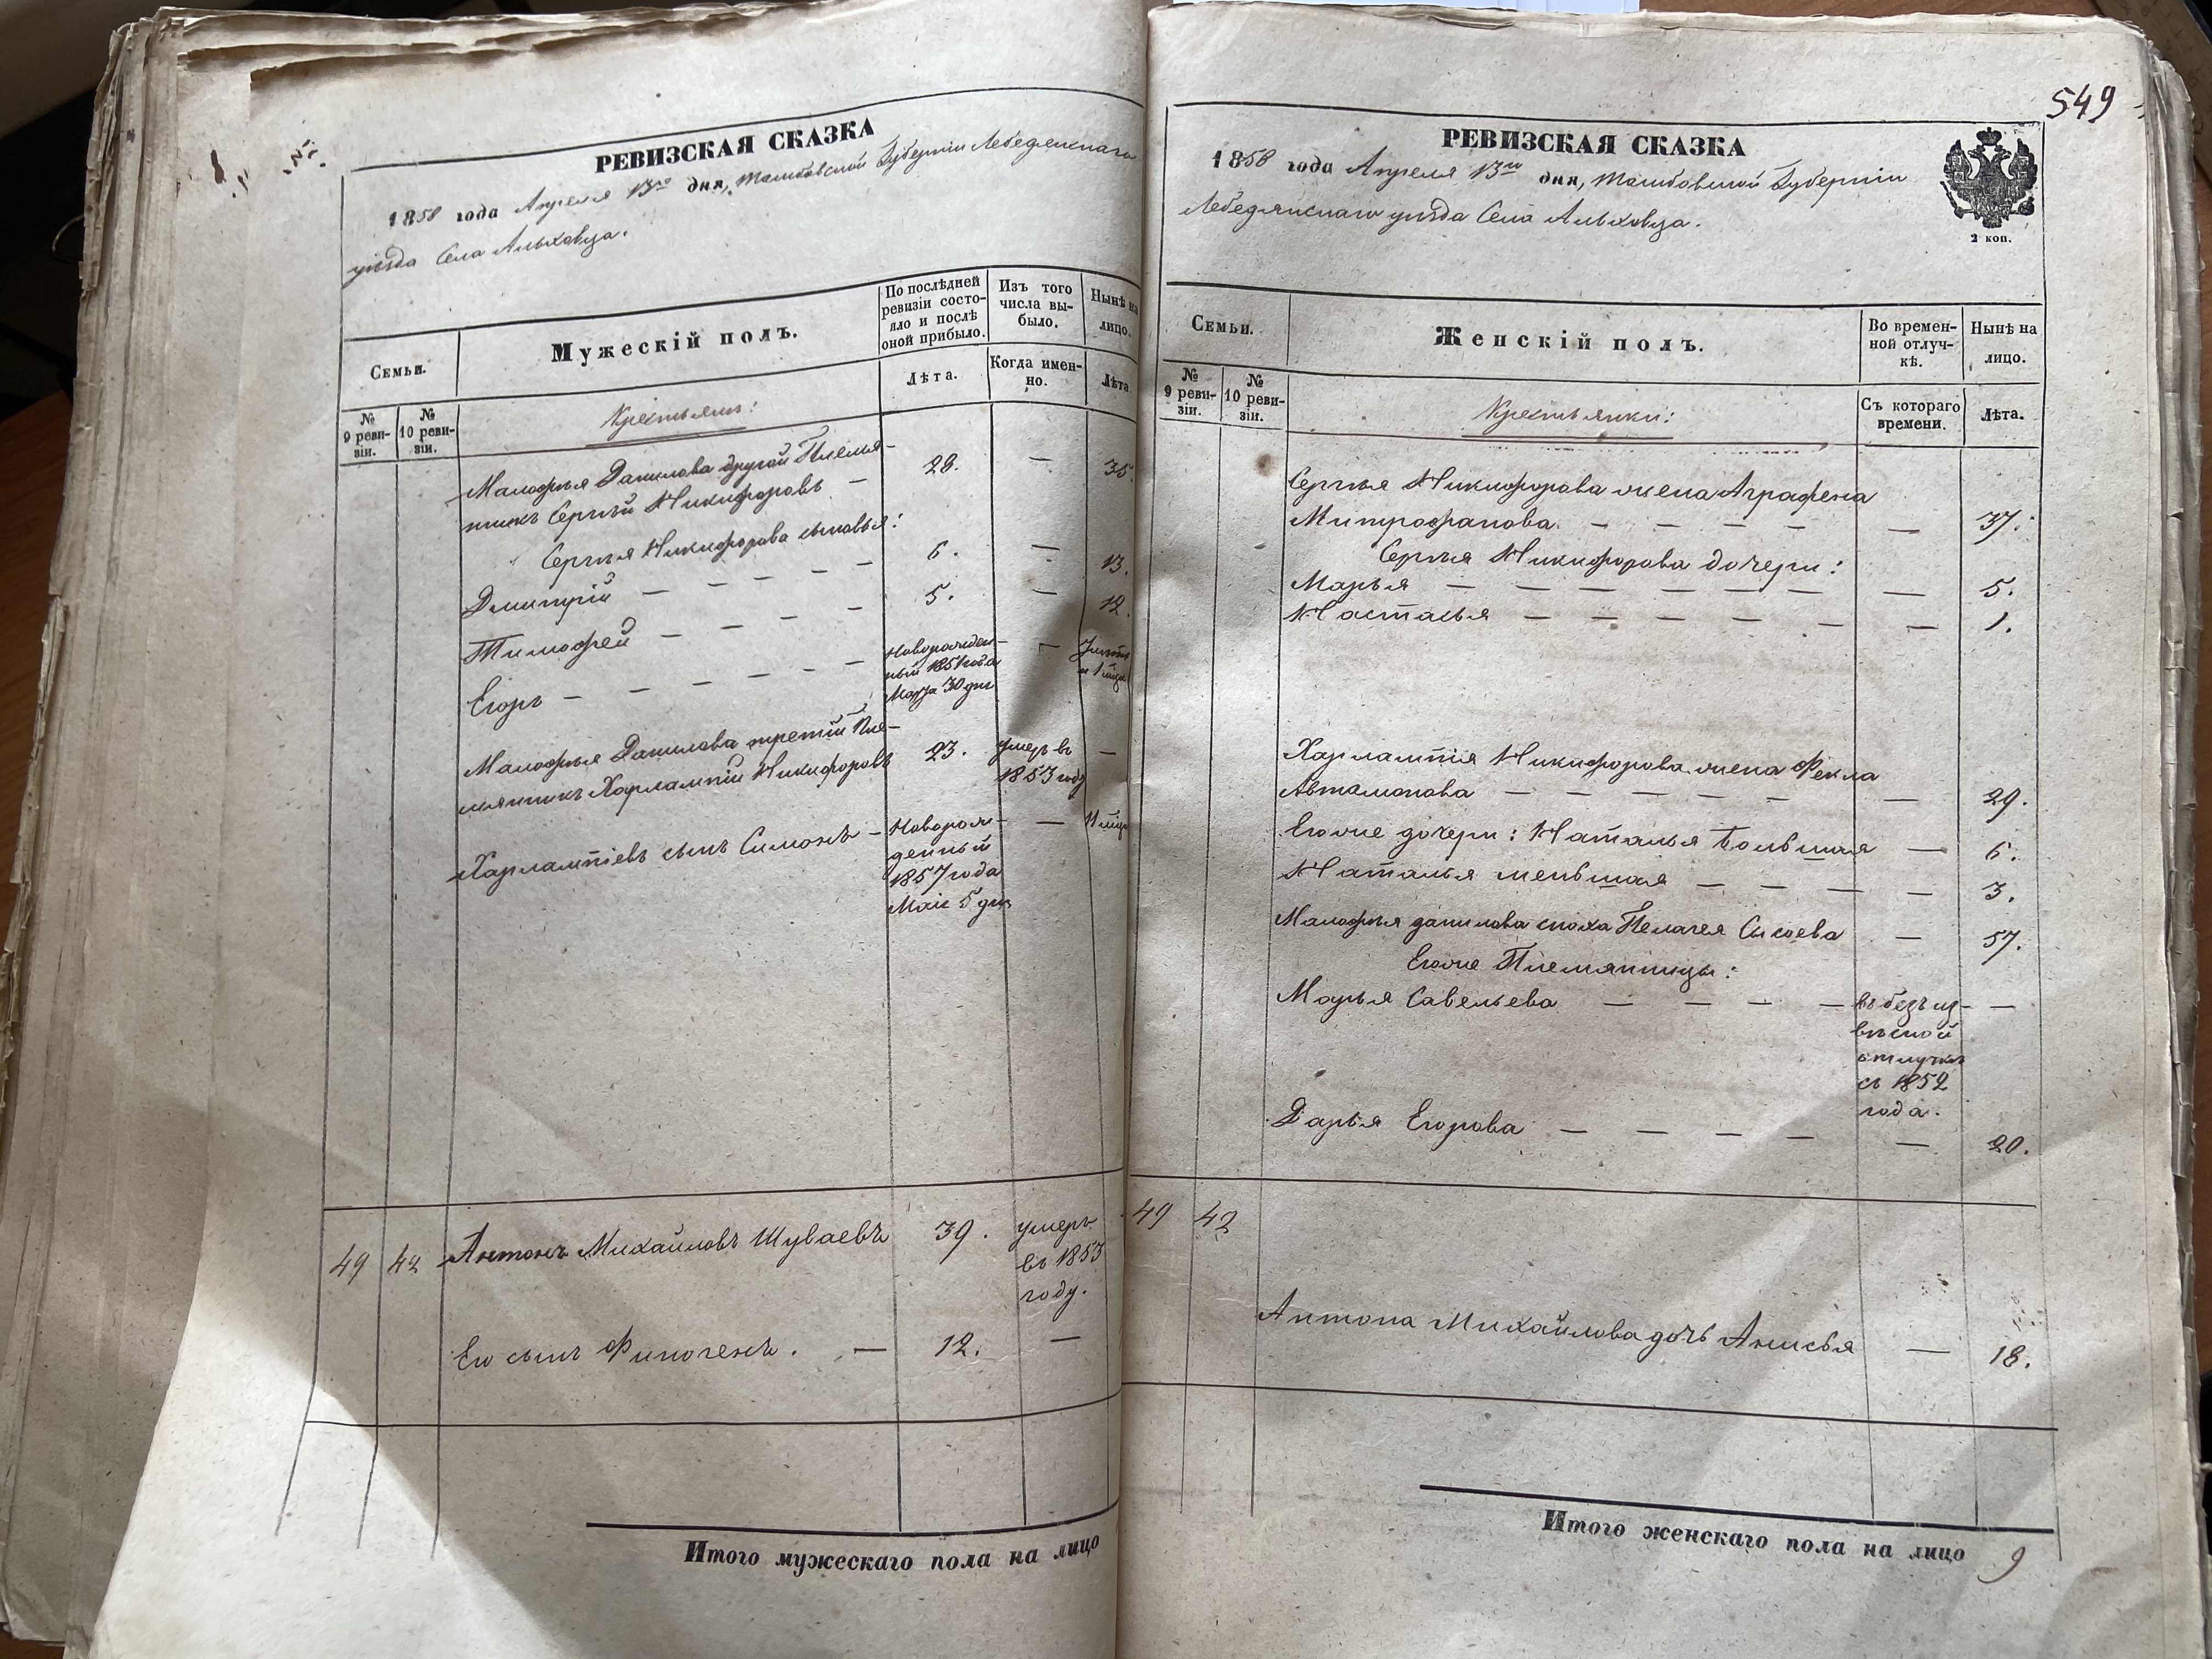 РЕВИЗСКАЯ СКАЗКА
1858 года Апреля 13го дня, Тамбовской Губернiи Лебедянскаго
уѣзда Села Альховца.
Семьи.
Мужескій полъ.
По послѣдней
ревизіи состо-
яло и послѣ
оной прибыло.
Изъ того
числа вы-
было.
Нынѣ на
лицо.
№
9 реви-
зіи.
№
10 реви-
зіи.
Лѣта.
Когда имен-
но.
Лѣта.
Крестьяне:
Малофѣя Данилова другой Племя-
никъ Сергѣй Никифоровъ — 28. — 35.
Сергѣя Никифорова сыновья:
Дмитрій — — — — 6. — 13.
Тимофей — — — — 5. — 12.
Егоръ — — — — — — Новорожден-
ный 1851 года
Марта 30 дня — 7 лѣтъ
и 1 мѣся
Малофѣя Данилова третій Пле-
мянникъ Харлампій Никифоровъ 23. умеръ въ
1853 году —
Харлампіевъ сынъ Симонъ — Новорож-
денный
1857 года
Маiя 5 дня — 11 мѣся
49 42 Антонъ Михайловъ Шуваевъ 39. умеръ
въ 1853
году.
Его сынъ Финогенъ. — 12. —
Итого мужескаго пола на лицо
549
РЕВИЗСКАЯ СКАЗКА
1858 года Апреля 13го дня, Тамбовской Губернiи
Лебедянскаго уѣзда Села Альховца.
2 коп.
Семьи.
Женскій полъ.
Во времен-
ной отлуч-
кѣ.
Нынѣ на
лицо.
№
9 реви-
зіи.
№
10 реви-
зіи.
Съ котораго
времени.
Лѣта.
Крестьянки:
Сергѣя Никифорова жена Аграфена
Митрофанова. — — — — — 37.
Сергѣя Никифорова дочери:
Марья — — — — — — — 5.
Настасья — — — — — — 1.
Харлампiя Никифорова жена Фекла
Автамонова — — — — — — 29.
Егоже дочери: Наталья большая — 6.
Наталья меньшая — — — — 3.
Малофѣя данилова сноха Пелагея Сысоева — 57.
Егоже Племянницы:
Марья Савельева — — — — въ безъиз- —
вѣсной
отлучкѣ
съ 1852
года.
Дарья Егорова — — — — — 20.
49 42
Антона Михайлова дочь Анисья — 18.
Итого женскаго пола на лицо 9